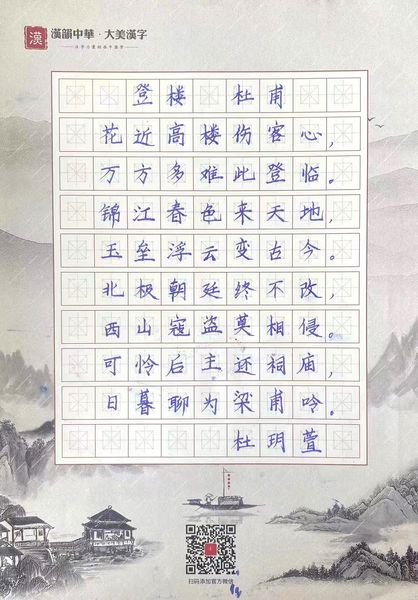 漢 漢韻中華·大美漢字
登楼 杜甫
花近高楼伤客心，
万方多难此登临。
锦江春色来天地，
玉垒浮云变古今。
北极朝廷终不改，
西山寇盗莫相侵。
可怜后主还祠庙，
日暮聊为梁甫吟。
杜玥萱
扫码添加官方微信